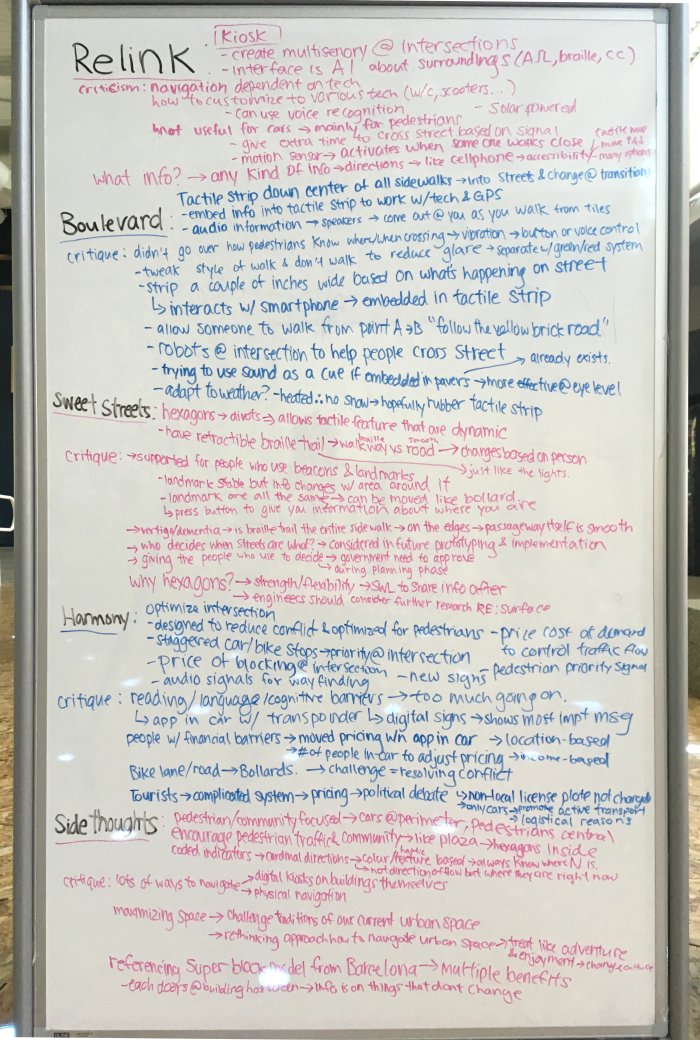 Relink: Kiosk
- create multisenory @ Intersections
- Interface is AI about surroundings (ASL, braille, cc)
criticism: navigation dependent on tech
how to customize to various tech (w/c, scooters...)
- can use voice recognition - Solar powered
not useful for cars → mainly for pedestrians
- give extra time to cross street based on signal
- motion sensor → activates when some one walks close
tactile map
move tab
many options
what info? → any kind of info → directions → like cellphone → accessibility
Tactile Strip down center of all sidewalks → into streets & change @ transitions
Boulevard: - embed info into tactile strip to work w/ tech & GPS
- audio information → speakers → come out @ you as you walk from tiles
critique: didn't go over how pedestrians know where/when crossing → vibration → button or voice control
- tweak style of walk & don't walk to reduce glare → separate w/ green/red system
- strip a couple of inches wide based on whats happening on street
↳ interacts w/ smartphone → embedded in tactile strip
- allow someone to walk from point A→B "follow the yellow brick road"
- robots @ intersection to help people cross street → already exists.
- trying to use sound as a cue if embedded in pavers → more effective @ eye level
- adapt to weather? - heated ∴ no snow → hopefully rubber tactile strip
Sweet Streets: hexagons → divots → allows tactile feature that are dynamic
- have retractible braille trail → walkway braille vs road smooth → changes based on person
→ just like the lights.
critique: → supported for people who use beacons & landmarks
- landmark stable but info changes w/ area around it
- landmark are all the same → can be moved like bollard
↳ press button to give you information about where you are
→ vertigo/dementia → is braille trail the entire sidewalk → on the edges → passageway itself is smooth
→ who decides when streets are what? → considered in future prototyping & implementation
→ giving the people who use to decide → government need to approve
↳ during planning phase
why hexagons? → strength/flexibility → SWL to share info after
→ engineers should consider further research RE: surface
Harmony: optimize intersection
- designed to reduce conflict & optimized for pedestrians - price cost of demand to control traffic flow
- staggered car/bike stops → priority @ intersection
- price of blocking @ intersection - pedestrian priority signal
- audio signals for way finding - new signs
critique: reading/language/cognitive barriers → too much going on.
↳ app in car w/ transponder ↳ digital signs → shows most impt msg
people w/ financial barriers → moved pricing w/n app in car → location-based
→ # of people in car to adjust pricing → income-based
Bike lane/road → Bollards. → challenge = resolving conflict
Tourists → complicated system → pricing → political debate ↳ non-local license plate not charged
→ only cars → promote active transport
→ logistical reasons
Side thoughts: pedestrian/community focused → cars @ perimeter, pedestrians central
encourage pedestrian traffic & community → like plaza → hexagons inside
coded indicators → cardinal directions → colour/texture haptic based → always know where N is.
↳ not direction of flow but where they are right now
critique: lots of ways to navigate → digital kiosks on buildings themselves
→ physical navigation
maximizing space → challenge traditions of our current urban space
→ rethinking approach how to navigate urban space → treat like adventure & enjoyment → change culture
referencing Super block model from Barcelona → multiple benefits
- each doors @ building has → info is on things that dont change